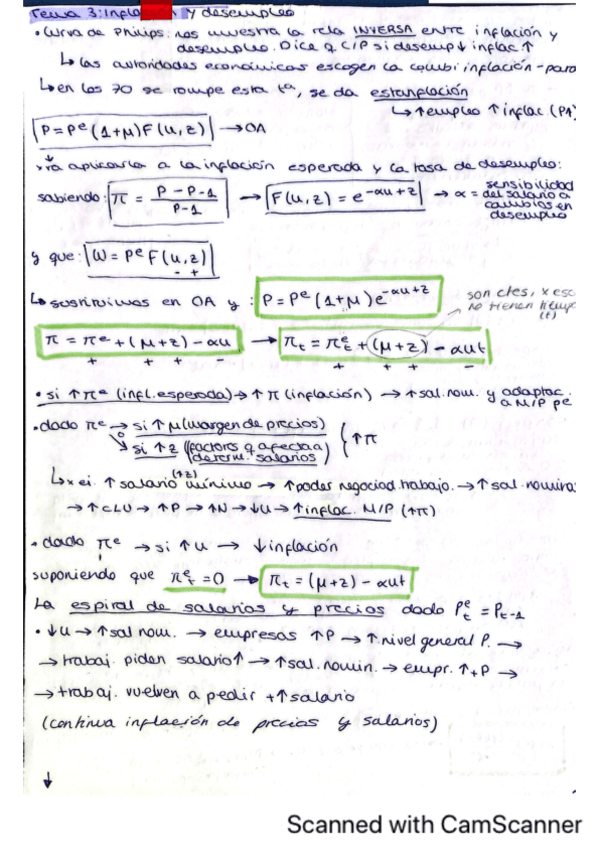 Tema 3: Inflación y desempleo
• Curva de Philips: nos muestra la rela INVERSA entre inflación y
desempleo. Dice q C/P si desemp↓ inflac↑
↳ las autoridades económicas escogen la combi inflación-paro
↳ en los 70 se rompe esta tª, se da estanflación
↳ ↑empleo ↑inflac. (PA)
P = Pᵉ (1+μ) F (u, z) → OA
aplicarla a la inflación esperada y la tasa de desempleo:
sabiendo: π = (P - P-1) / P-1 → F(u, z) = e^(-αu + z) → α = sensibilidad
del salario a
cambios en
desempleo
y que: W = Pᵉ F(u, z)
- +
↳ sustituimos en OA y: P = Pᵉ (1+μ) e^(-αu + z)
son ctes, x eso
no tienen
(t)
π = πᵉ + (μ + z) - αu → πt = πᵉt + (μ + z) - αut
+ + + - + + + -
• si ↑πᵉ (infl. esperada) → ↑π (inflación) → ↑sal. nom. y adaptac.
a M/P pe
• dado πᵉ → si ↑μ (margen de precios)
o
si ↑z (factores q afectan a
determ. salarios) } ↑π
(↑z)
↳ x ej. ↑salario mínimo → ↑poder negociad. trabajo. → ↑sal. nomina
→ ↑CLU → ↑P → ↑N → ↓U → ↑inflac. M/P (↑π)
• dado πᵉ → si ↑u → ↓inflación
suponiendo que πᵉt = 0 → πt = (μ + z) - αut
La espiral de salarios y precios dado Pᵉt = Pt-1
• ↓u → ↑sal nom. → empresas ↑P → ↑nivel general P. →
→ trabaj. piden salario↑ → ↑sal. nomin. → empr. ↑+P →
→ trabaj. vuelven a pedir +↑salario
(continua inflación de precios y salarios)
↓
Scanned with CamScanner